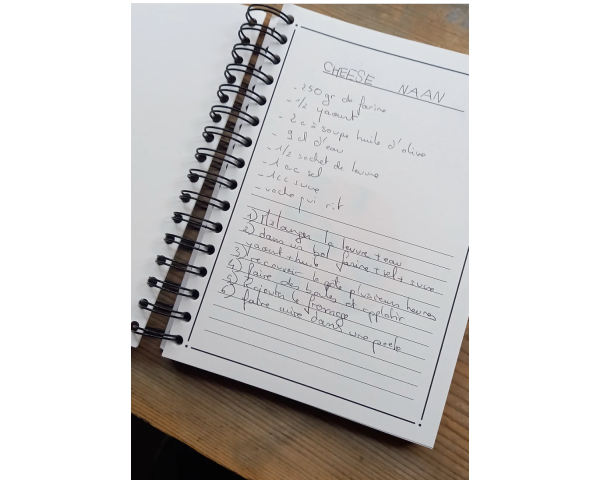 CHEESE NAAN
- 250 gr de farine
- 1/2 yaourt
- 2 c à soupe huile d'olive
- 9 cl d'eau
- 1/2 sachet de levure
- 1 cc sel
- 1 cc sucre
- vache qui rit
1) Mélanger la levure + eau
2) dans un bol farine + sel + sucre
yaourt + huile
3) recouvrir le pate plusieurs heures
4) faire des boules et applatir
5) Rajouter le fromage
6) faire cuire dans une poele